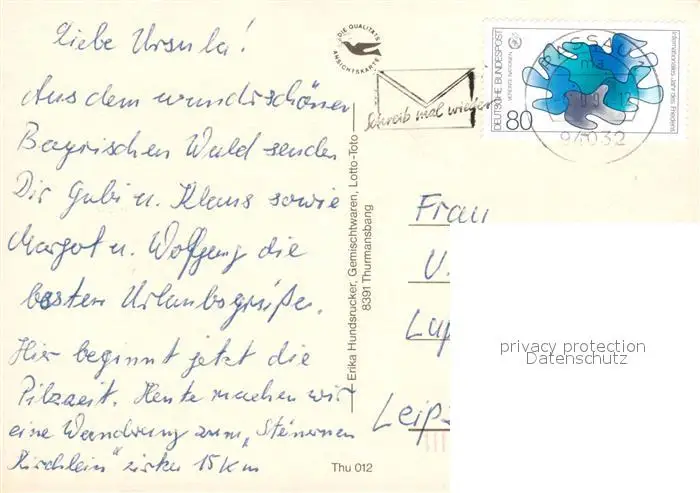 Liebe Ursula!
Aus dem wundischönen
Bayrischen Wald senden
Dir Gabi u. Klaus sowie
Margot u. Wolfgang die
besten Urlaubsgrüße.
Hier beginnt jetzt die
Pilzzeit. Heute machen wir
eine Wandrung zum „Steinernen
Kirchlein" zirka 15 km
DIE QUALITÄTS
ANSICHTSKARTE
Schreib mal wieder
DEUTSCHE BUNDESPOST
80
VEREINTE NATIONEN
Internationales Jahr des Friedens
PASSAU
94032
Erika Hundsrucker, Gemischtwaren, Lotto-Toto
8391 Thurmansbang
Thu 012
Frau
U.
Leip
privacy protection
Datenschutz